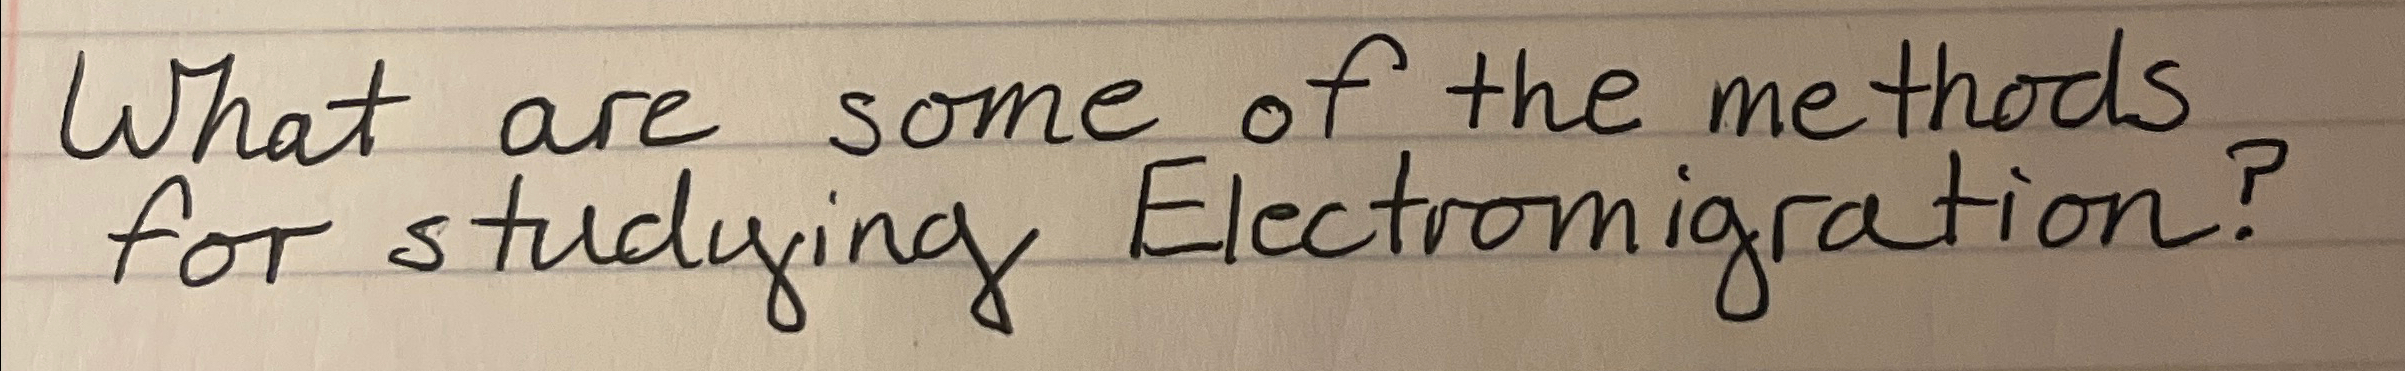 What are some of the methods
for studying Electromigration?